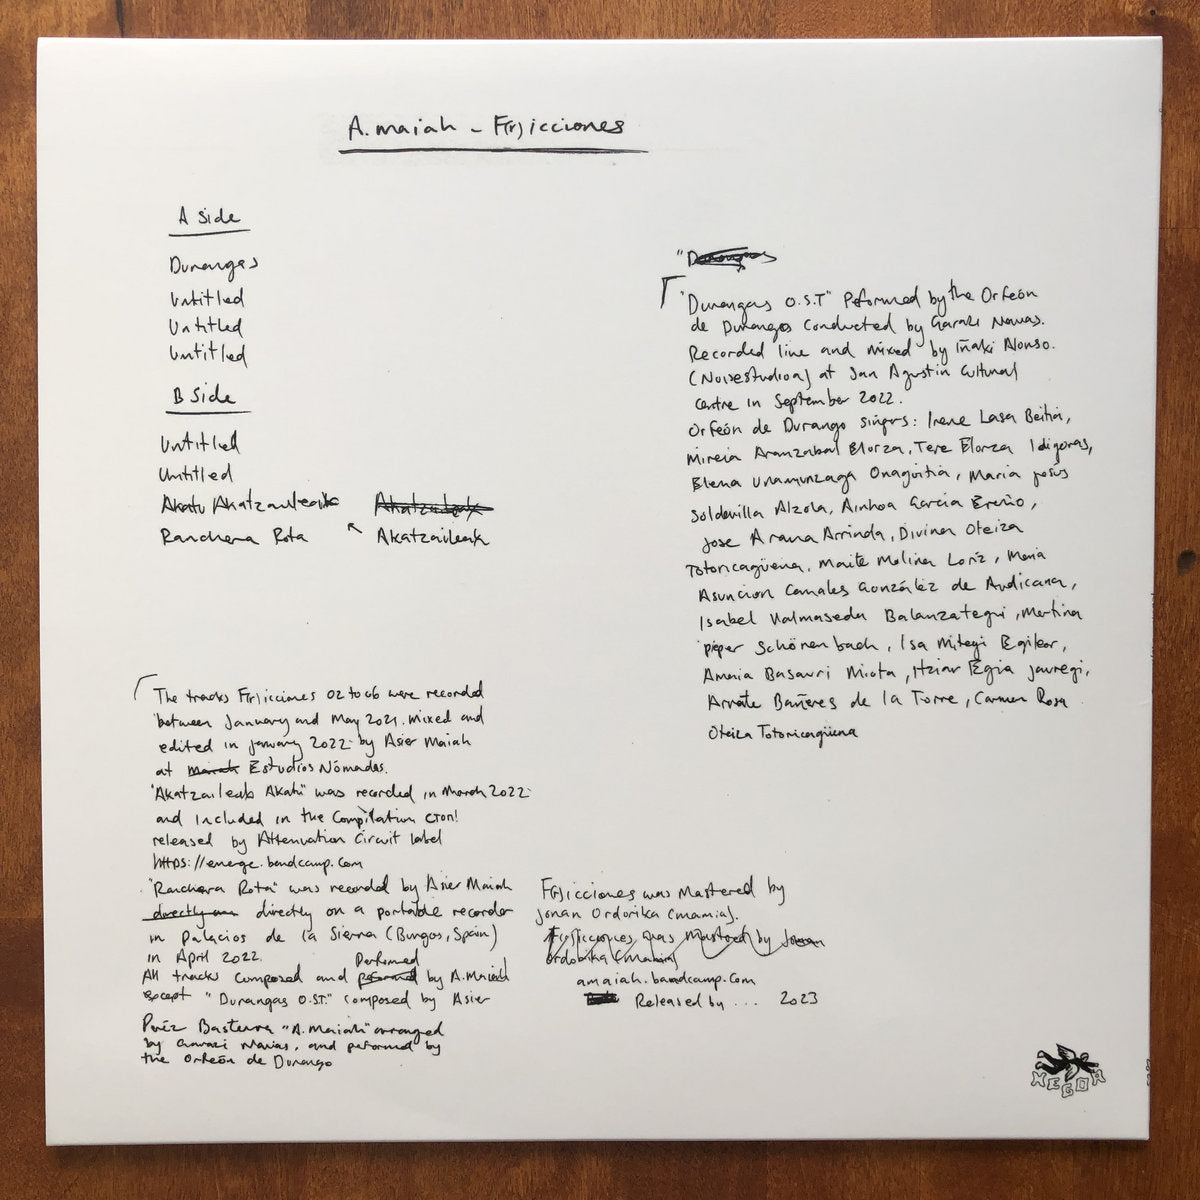 A. maiah - F(r)icciones
A Side
Durangas
Untitled
Untitled
Untitled
B Side
Untitled
Untitled
Akatu Akatzauleak
Akatzaileak
Ranchera Rota
Akatzaileak
"Durangas
"Durangas O.S.T" Peformed by the Orfeón
de Durangos conducted by Garazi Navas.
Recorded line and mixed by Iñaki Alonso.
(Noisestudioa) at San Agustin Cultural
Centre in September 2022.
Orfeón de Durango singers: Irene Lasa Beitia,
Mireia Aranzabal Elorza, Tere Elorza Idigoras,
Elena Unamunzaga Onaguitia, Maria Jesús
Soldevilla Alzola, Ainhoa Garcia Ereño,
Jose Arana Arrinda, Divina Oteiza
Totoricagüena, Maite Molina Loriz, Maria
Asuncion Canales González de Audicana,
Isabel Valmaseda Balanzategui, Martina
pieper Schönenbach, Isa Mitegi Egileor,
Amaia Basauri Miota, Itziar Egia Jauregi,
Arrate Bañeres de la Torre, Carmen Rosa
Oteiza Totoricagüena
The tracks F(r)icciones 02 to 06 were recorded
between January and May 2021. Mixed and
edited in january 2022 by Asier Maiah
at Maiah Estudios Nómadas.
"Akatzaileak Akatu" was recorded in March 2022
and included in the compilation CTON!
released by Attenuation Circuit label
https://emerge.bandcamp.com
"Ranchera Rota" was recorded by Asier Maiah
directly on directly on a portable recorder
in Palacios de la Sierra (Burgos, Spain)
in April 2022.
Performed
All tracks composed and peformed by A.Maiah
except "Durangas O.S.T." composed by Asier
Periz Basterra "A.Maiah" arranged
by Garazi Navas, and peformed by
the Orfeón de Durango
F(r)icciones was mastered by
Jonan Ordorika (Mamia).
F(r)icciones was Mastered by Jonan
Ordorika (Mamia)
amaiah.bandcamp.com
Released by ... 2023
HEGOA